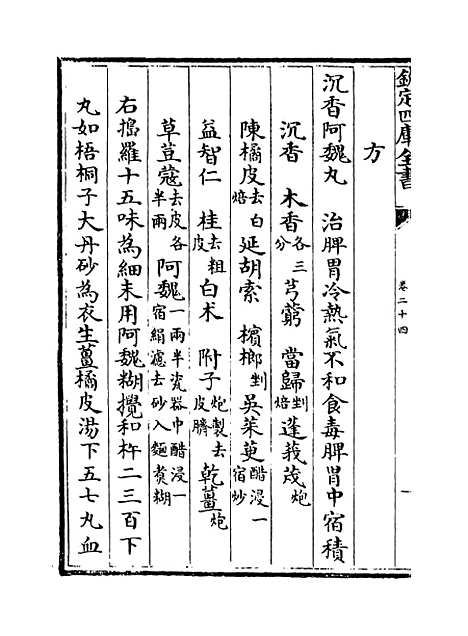 欽定四庫全書
卷二十四
一
方
沉香阿魏丸　治脾胃冷熱氣不和食毒脾胃中宿積
沉香　木香各三分　芎藭　當歸剉焙　蓬莪茂炮
陳橘皮去白焙　延胡索　檳榔剉　吳茱萸醋浸一宿炒
益智仁　桂去粗皮　白术　附子炮製去皮臍　乾薑炮
草荳蔻去皮各半兩　阿魏一兩半瓷器中醋浸一宿絹濾去砂入麵煑糊
右搗羅十五味為細末用阿魏糊攪和杵二三百下
丸如梧桐子大丹砂為衣生薑橘皮湯下五七丸血